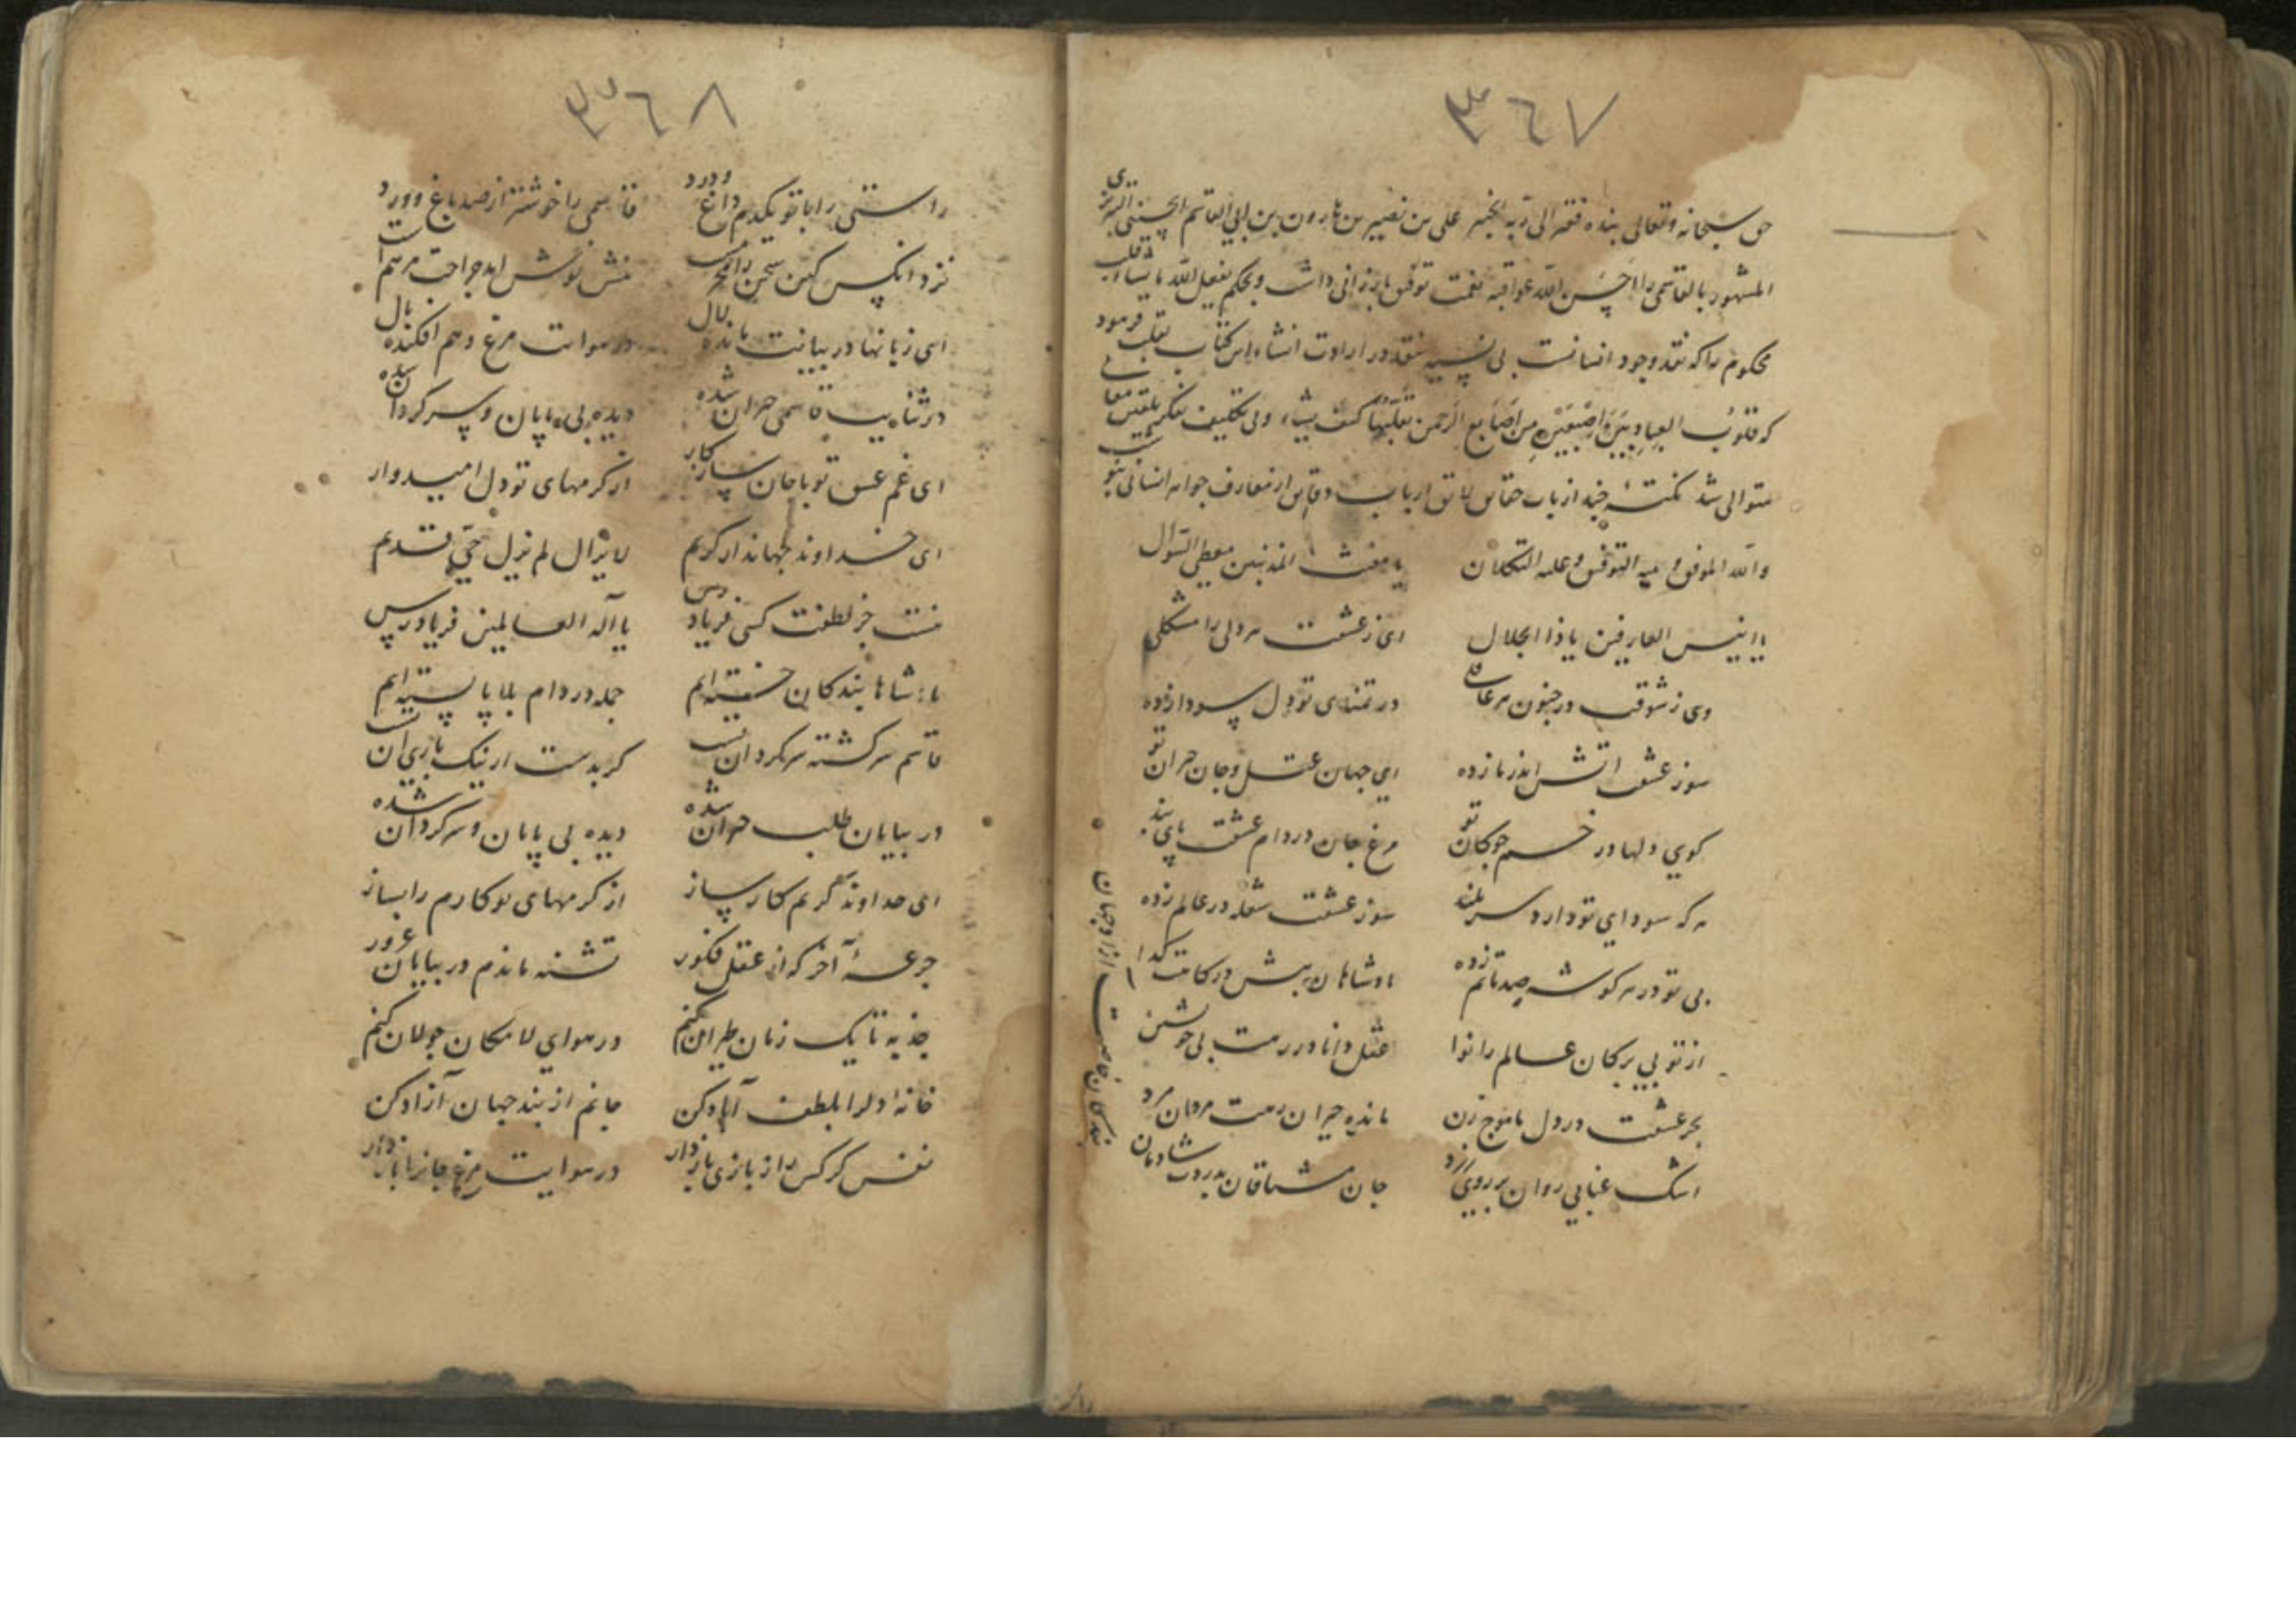 ٣٦٧
حق سبحانه و تعالی بنده فقیر الی ربه الخبیر علی بن نصیر بن هارون بن ابی القاسم الحسینی التبریزی
المشهور بالقاسمی را احسن الله عواقبه نعمت توفیق بارزانی داشت و بحکم یفعل الله ما یشاء قلب
محکوم را که نقد وجود انسانست بی نسیه نقد در ارادت انشاء این کتاب تقلب فرمود
که قلوب العباد بین اصبعین من اصابع الرحمن یقلبها کیف یشاء ولی تکلیف تفکر بتلقین معانی
متوالی شد نکتهٔ چند از باب حقایق لایق ارباب دقایق از معارف جواهر انسانی
والله الموفق و منه التوفیق و علیه التکلان
یا مغیث المذنبین معطی السوال
یا انیس العارفین یا ذا الجلال
ای ز عشقت هر دلی را مشکلی
وی ز شوقت در جنون هر عاقلی
در تمنای تو دل سودا زده
سوز عشقت اتش اندر ما زده
ای جهان عقل و جان حیران تو
کوی دلها در خم چوکان تو
مرغ جان در دام عشقت پای بند
هر که سودای تو دارد سر بلند
سوز عشقت شعله در عالم زده
بی تو در هر کوشه صد ماتم زده
پادشاهان پیش درکاهت کدا
از تو بی برکان عالم را نوا
عقل دانا در رهت بی خویشتن
بحر عشقت در دل ما موج زن
مانده حیران رهت مردان مرد
اشک عنابی روان بر روی زرد
جان مشتاقان بدردت شادمان
بندکان خاصت ازاد جهان
٣٦٨
راستی را با تو یکدم داغ و درد
قاسمی را خوشتر از صد باغ و ورد
نزد انکس کین سخن را محرمست
نیش نوش امد جراحت مرهم است
ای زبانها در بیانت مانده لال
در هوایت مرغ وهم افکنده بال
در ثنایت قاسمی حیران شده
دیده بی پایان و سرکردان شده
ای غم عشق تو با جان سازکار
از کرمهای تو دل امیدوار
ای خداوند جهاندار کریم
لا یزال لم یزل حی قدیم
نیست جز لطفت کسی فریادرس
یا اله العالمین فریاد رس
پادشاها بندکان خسته ایم
جمله در دام بلا پا بسته ایم
قاسم سرکشته سرکردان تست
کر بدست ار نیک باری ان تست
در بیابان طلب حیران شده
دیده بی پایان و سرکردان شده
ای خداوند کریم کارساز
از کرمهای تو کارم را بساز
جرعهٔ آخر که از عقل فکور
تشنه ماندم در بیابان غرور
جذبه تا یک زمان طیران کنم
در هوای لامکان جولان کنم
خانهٔ دل را بلطف آباد کن
جانم از بند جهان آزاد کن
نفس کرکس را ز بازی باز دار
در هوایت مرغ جانرا باز دار